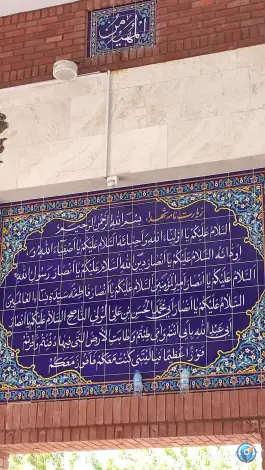 المهيمن
زیارت نامه شهدا
بسم الله الرحمن الرحیم
السلام علیکم یا اولیاء الله و احبائه السلام علیکم یا اصفیاء الله و
اودائه السلام علیکم یا انصار دین الله السلام علیکم یا انصار رسول الله
السلام علیکم یا انصار امیرالمؤمنین السلام علیکم یا انصار فاطمة سیدة نساء العالمین
السلام علیکم یا انصار ابی محمد الحسن بن علی الولی الناصح السلام علیکم یا انصار
ابی عبدالله بابی انتم و امی طبتم و طابت الارض التی فیها دفنتم و فزتم
فوزا عظیما فیا لیتنی کنت معکم فافوز معکم